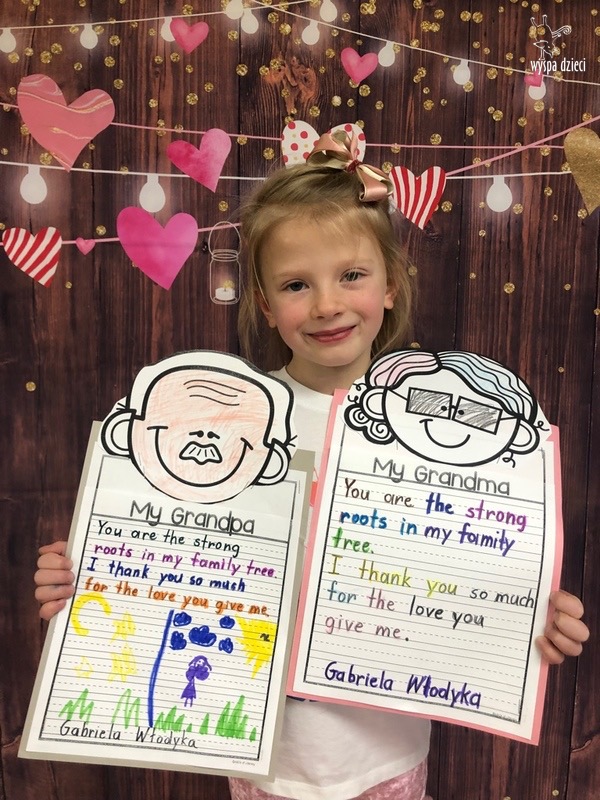 wyspa dzieci
My Grandpa
You are the strong
roots in my family tree.
I thank you so much
for the love you give me.
Gabriela Włodyka
My Grandma
You are the strong
roots in my family
tree.
I thank you so much
for the love you
give me.
Gabriela Włodyka